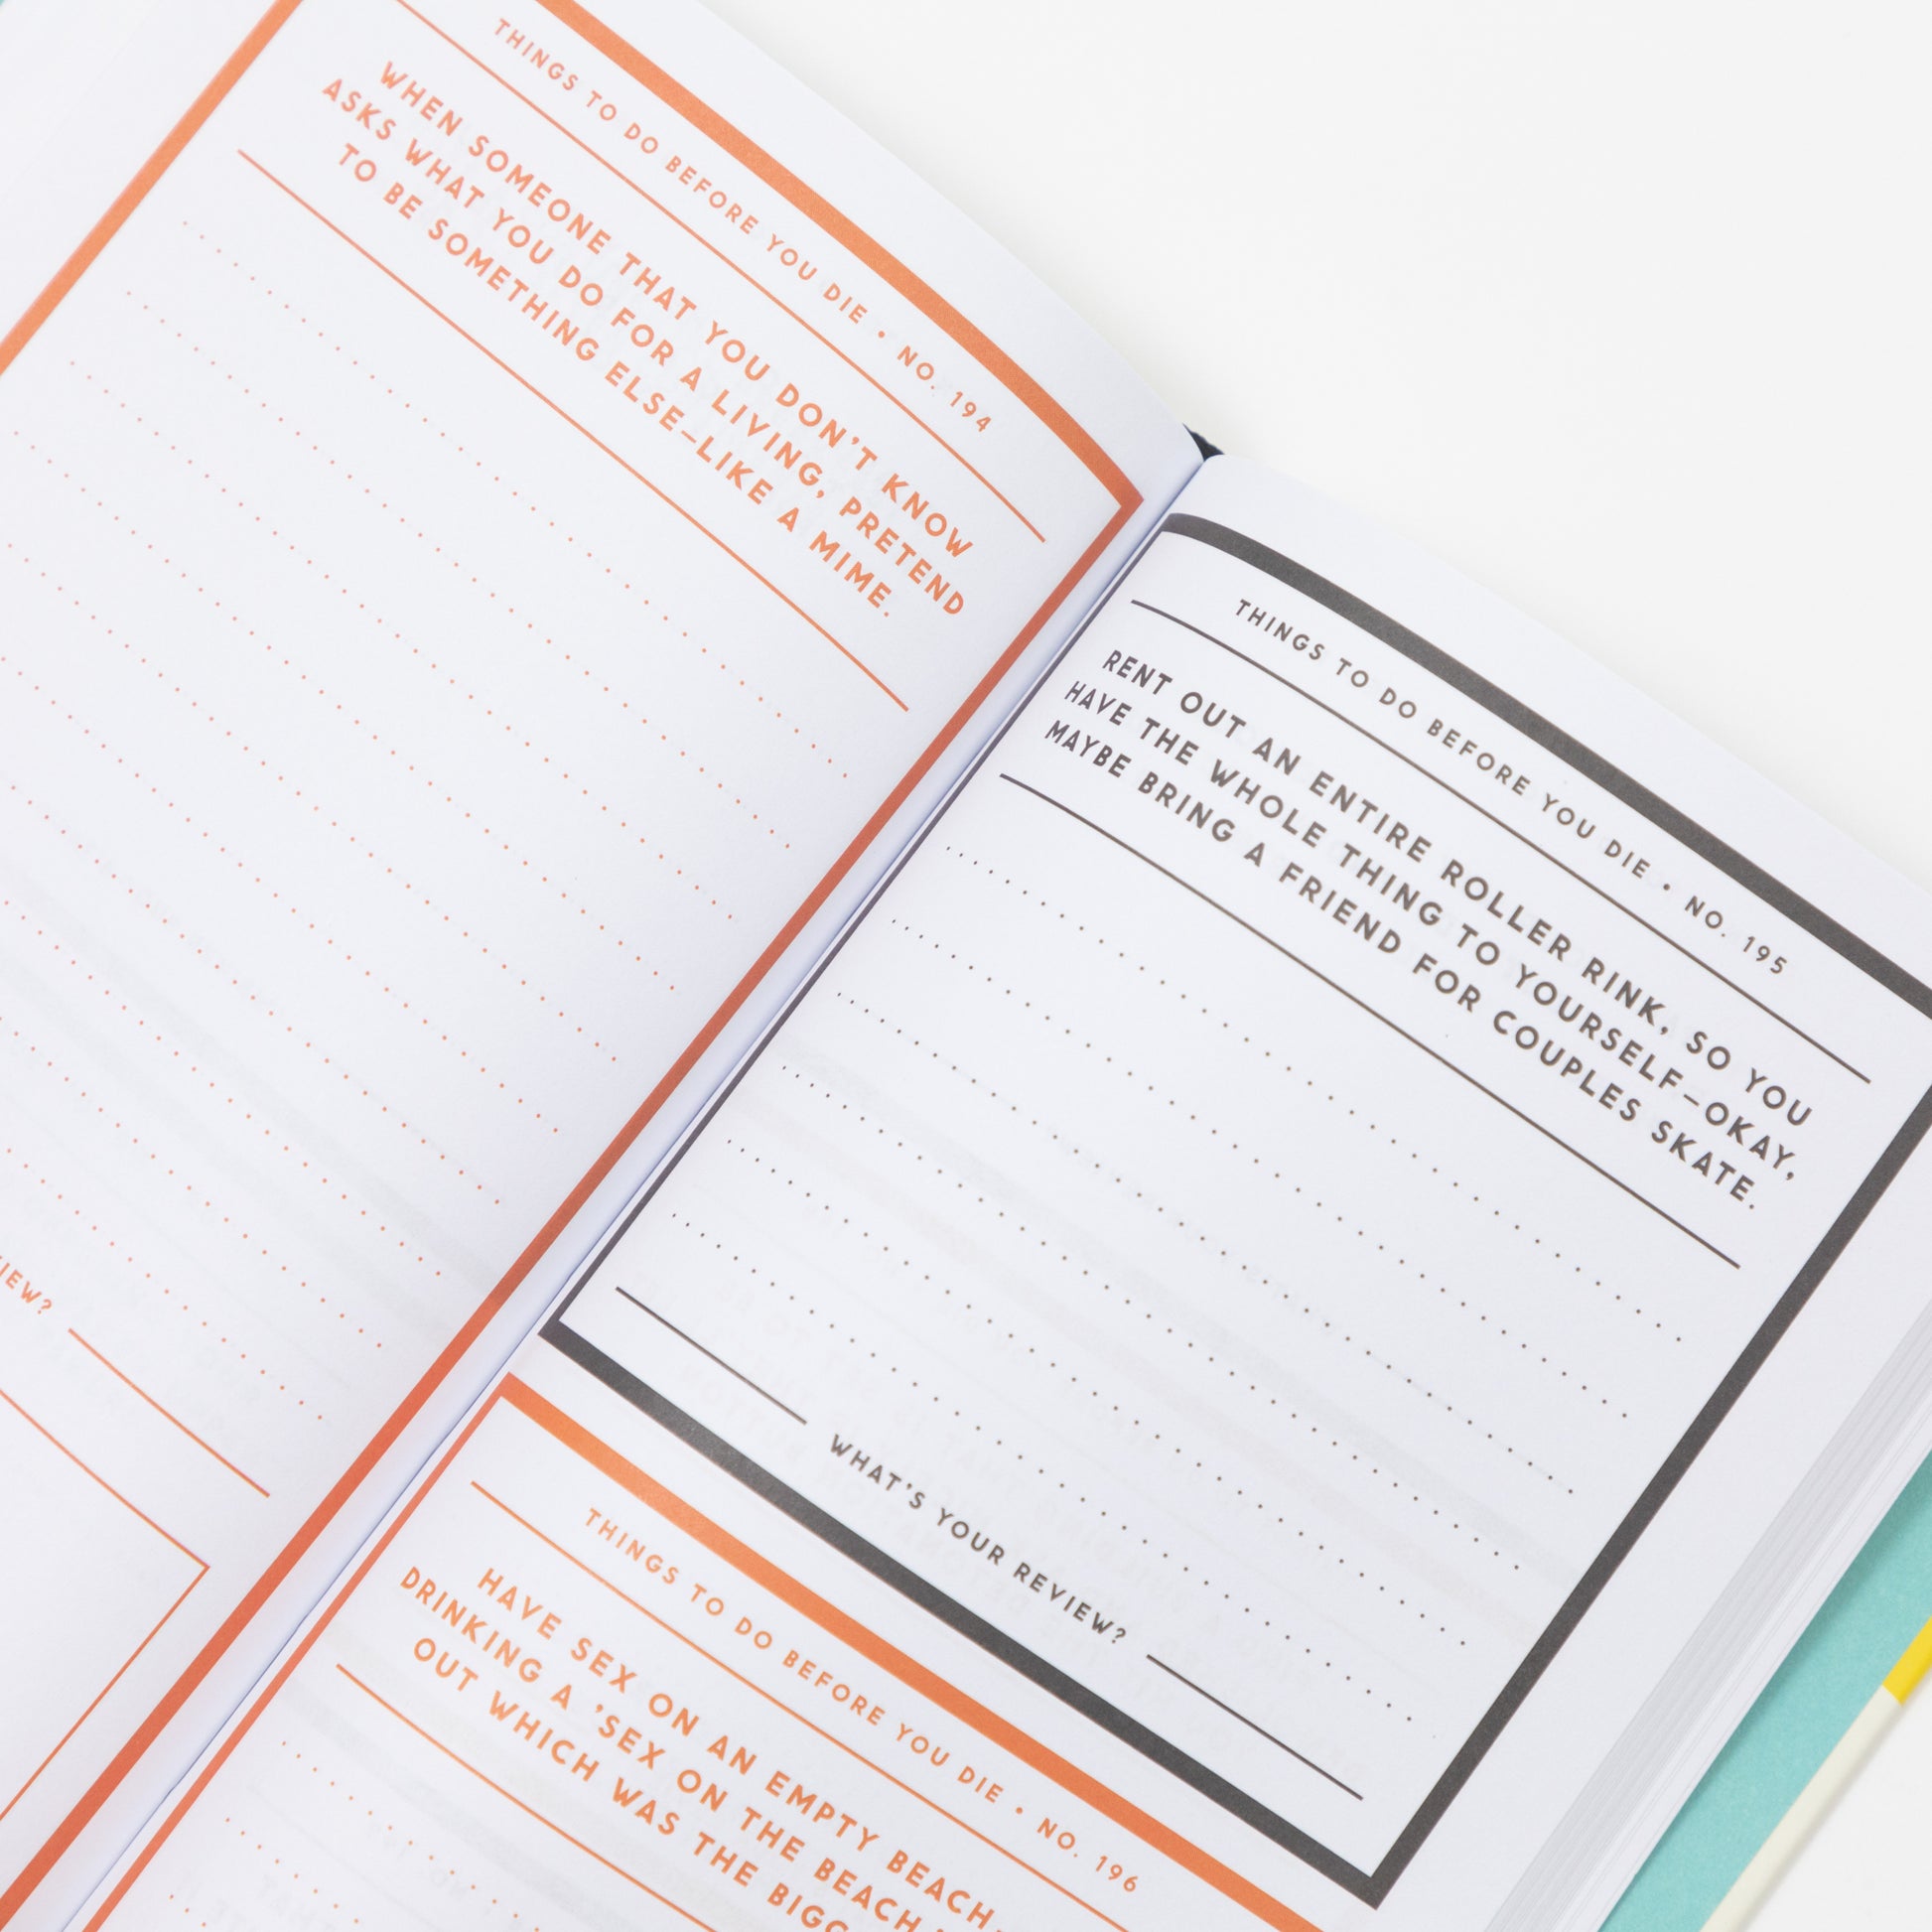 THINGS TO DO BEFORE YOU DIE • NO. 194
WHEN SOMEONE THAT YOU DON'T KNOW
ASKS WHAT YOU DO FOR A LIVING, PRETEND
TO BE SOMETHING ELSE—LIKE A MIME.
THINGS TO DO BEFORE YOU DIE • NO. 195
RENT OUT AN ENTIRE ROLLER RINK, SO YOU
HAVE THE WHOLE THING TO YOURSELF—OKAY,
MAYBE BRING A FRIEND FOR COUPLES SKATE.
WHAT'S YOUR REVIEW?
THINGS TO DO BEFORE YOU DIE • NO. 196
HAVE SEX ON AN EMPTY BEACH
DRINKING A 'SEX ON THE BEACH
OUT WHICH WAS THE